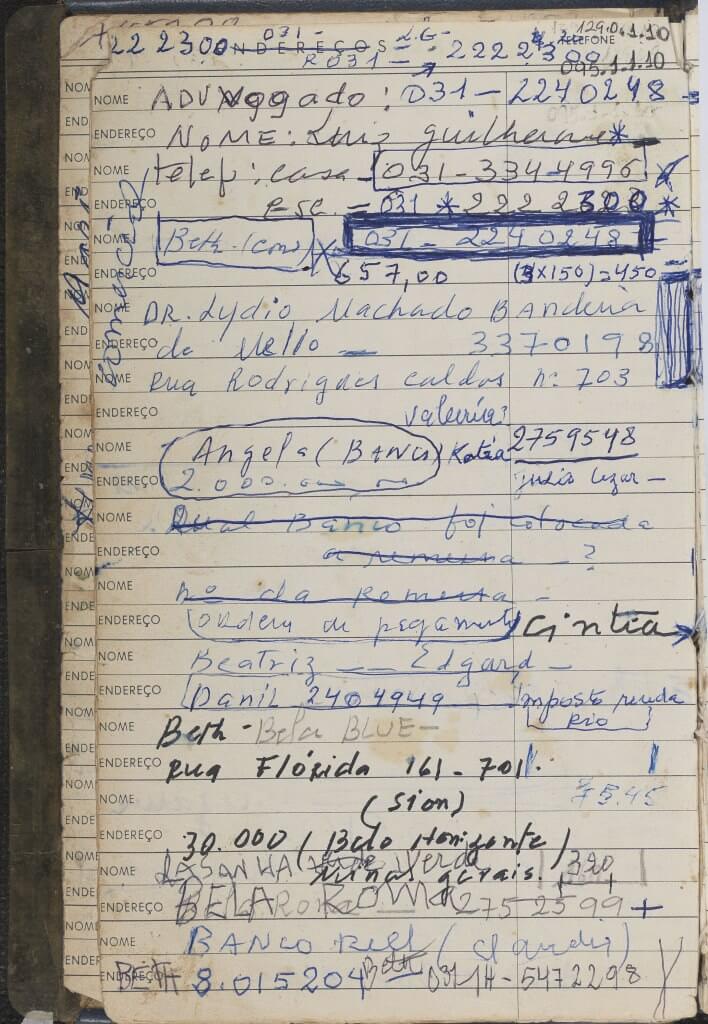 129.0.1.10
222 2300 ENDEREÇOS 031 - TELEFONE
R031 - 2222300 095.1.1.10
NOME ADVoggado: 031 - 2240248 -
ENDEREÇO NOME: Luis guilherme *
NOME telef: casa 031-334-4996
ENDEREÇO esc. - 031 * 222 2300 *
NOME Beth. 031 - 2240248
ENDEREÇO 657,00 (3x150)=450
NOME DR. Lydio Machado Bandeira
ENDEREÇO de Mello - 3370198
NOME Rua Rodrigues caldas nº 703
ENDEREÇO valeria?
NOME Angela (BANCO) Katia 2759548
ENDEREÇO 2.000.
NOME Qual Banco foi colocada
ENDEREÇO a remessa - ?
NOME nº da Remessa -
ENDEREÇO ordem de pagamento Cintia
NOME Beatriz __ Edgard -
ENDEREÇO Danil 2404949 imposto renda
NOME Beth - Bela BLUE - Rio
ENDEREÇO Rua Flórida 161 - 701
NOME (Sion) 75.45
ENDEREÇO 30.000 (Belo Horizonte)
NOME LASANHA Verde Minas gerais. 320
ENDEREÇO BELA ROMA 275 2599 +
NOME BANCO Real (Claudia)
ENDEREÇO BETH 8.015204 Beth 031 - 5472298